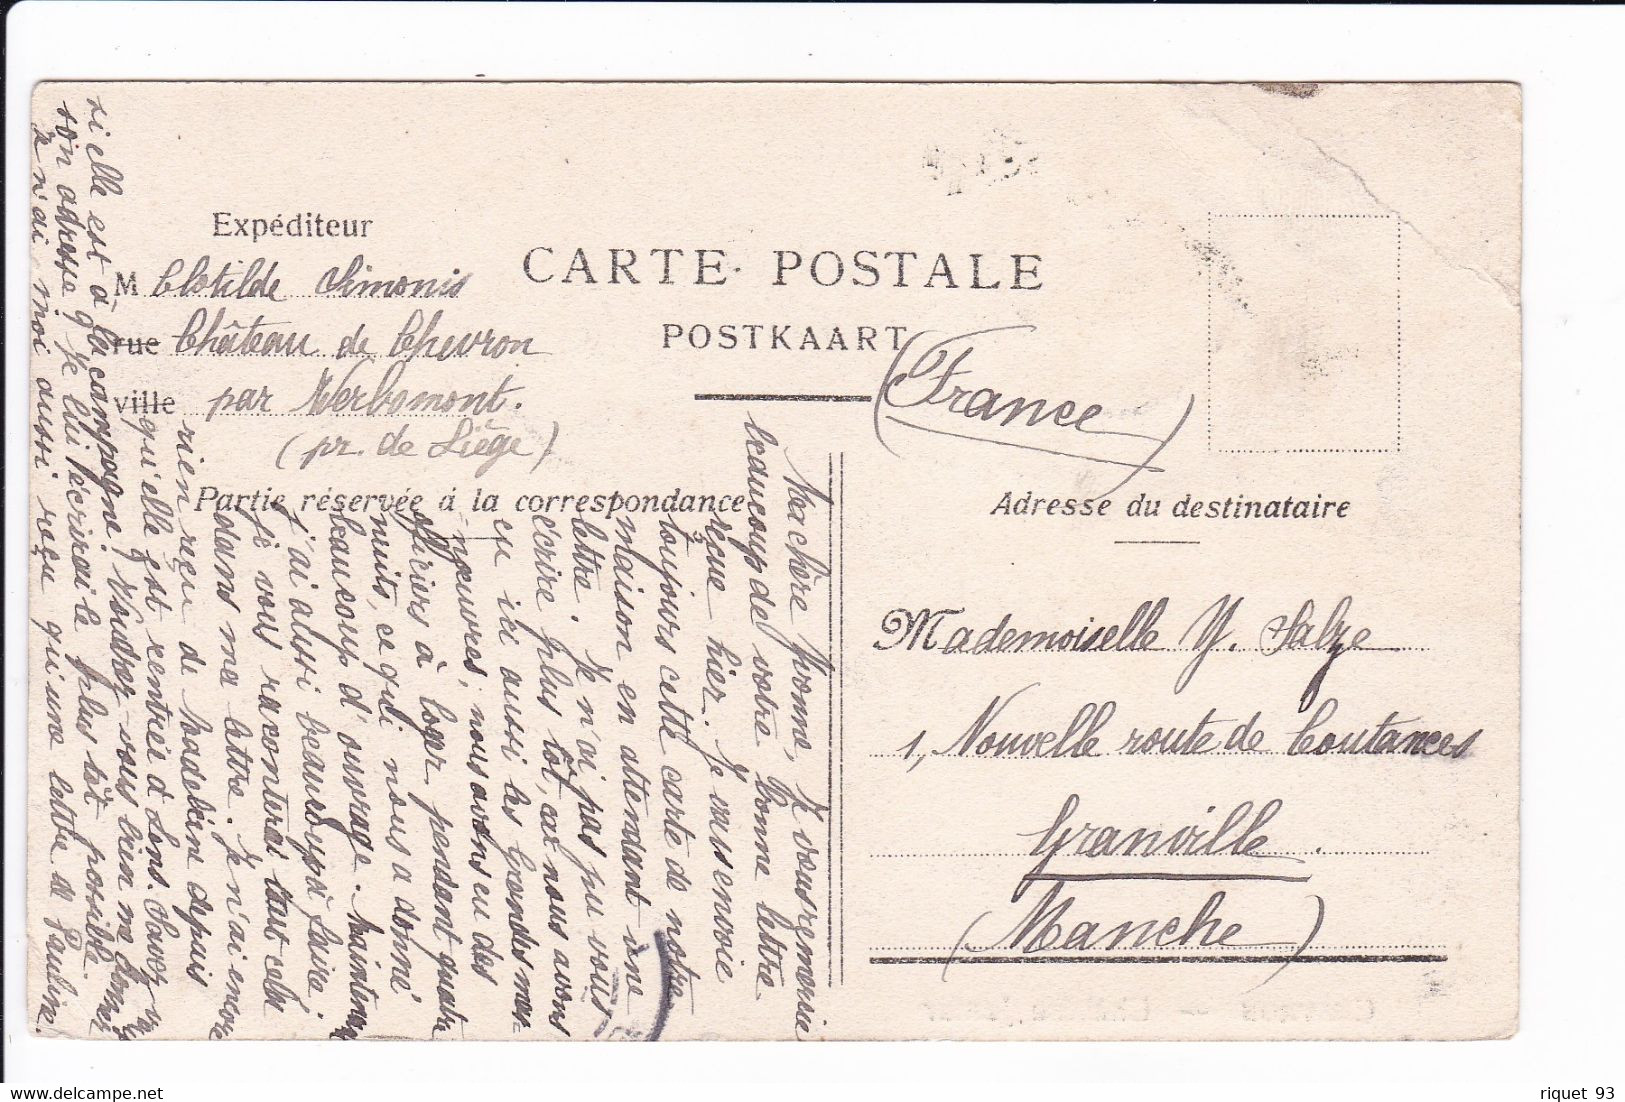 Expéditeur
M Clotilde Simonis
rue Château de Chevron
ville par Werbomont.
(pr. de Liège)
CARTE POSTALE
POSTKAART
(France)
Partie réservée à la correspondance
Adresse du destinataire
Mademoiselle Y. Salze
1, Nouvelle route de Coutances
Granville.
(Manche)
Ma chère Yvonne, Je vous remercie
beaucoup de votre bonne lettre
reçue hier. Je vous envoie
toujours cette carte de notre
maison en attendant une
lettre. Je n'ai pas pu vous
écrire plus tôt, car nous avons
eu ici aussi les Grandes ma-
nœuvres, nous avons eu des
officiers à loger pendant quatre
nuits, ce qui nous a donné
beaucoup d'ouvrage. Maintenant
j'ai aussi beaucoup à faire
je vous raconterai tout cela
dans ma lettre. Je n'ai encore
rien reçu de Madeleine depuis
qu'elle est rentrée à Lons. Savez-vs
si elle est à la campagne? Voudrez-vous bien me donner
son adresse q je lui écrirai le plus tôt possible.
Je n'ai moi aussi reçu qu'une lettre de Pauline.
riquet 93